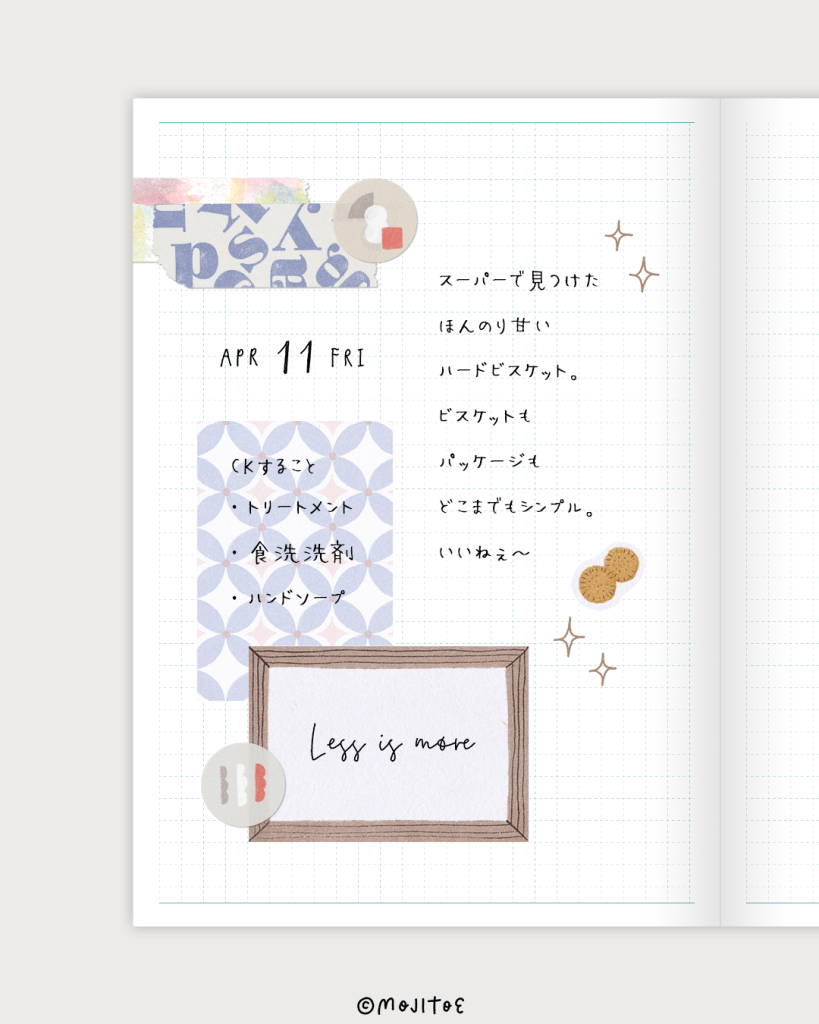 APR 11 FRI
CKすること
・トリートメント
・食洗洗剤
・ハンドソープ
スーパーで見つけた
ほんのり甘い
ハードビスケット。
ビスケットも
パッケージも
どこまでもシンプル。
いいねぇ〜
Less is more
©MOJITOE